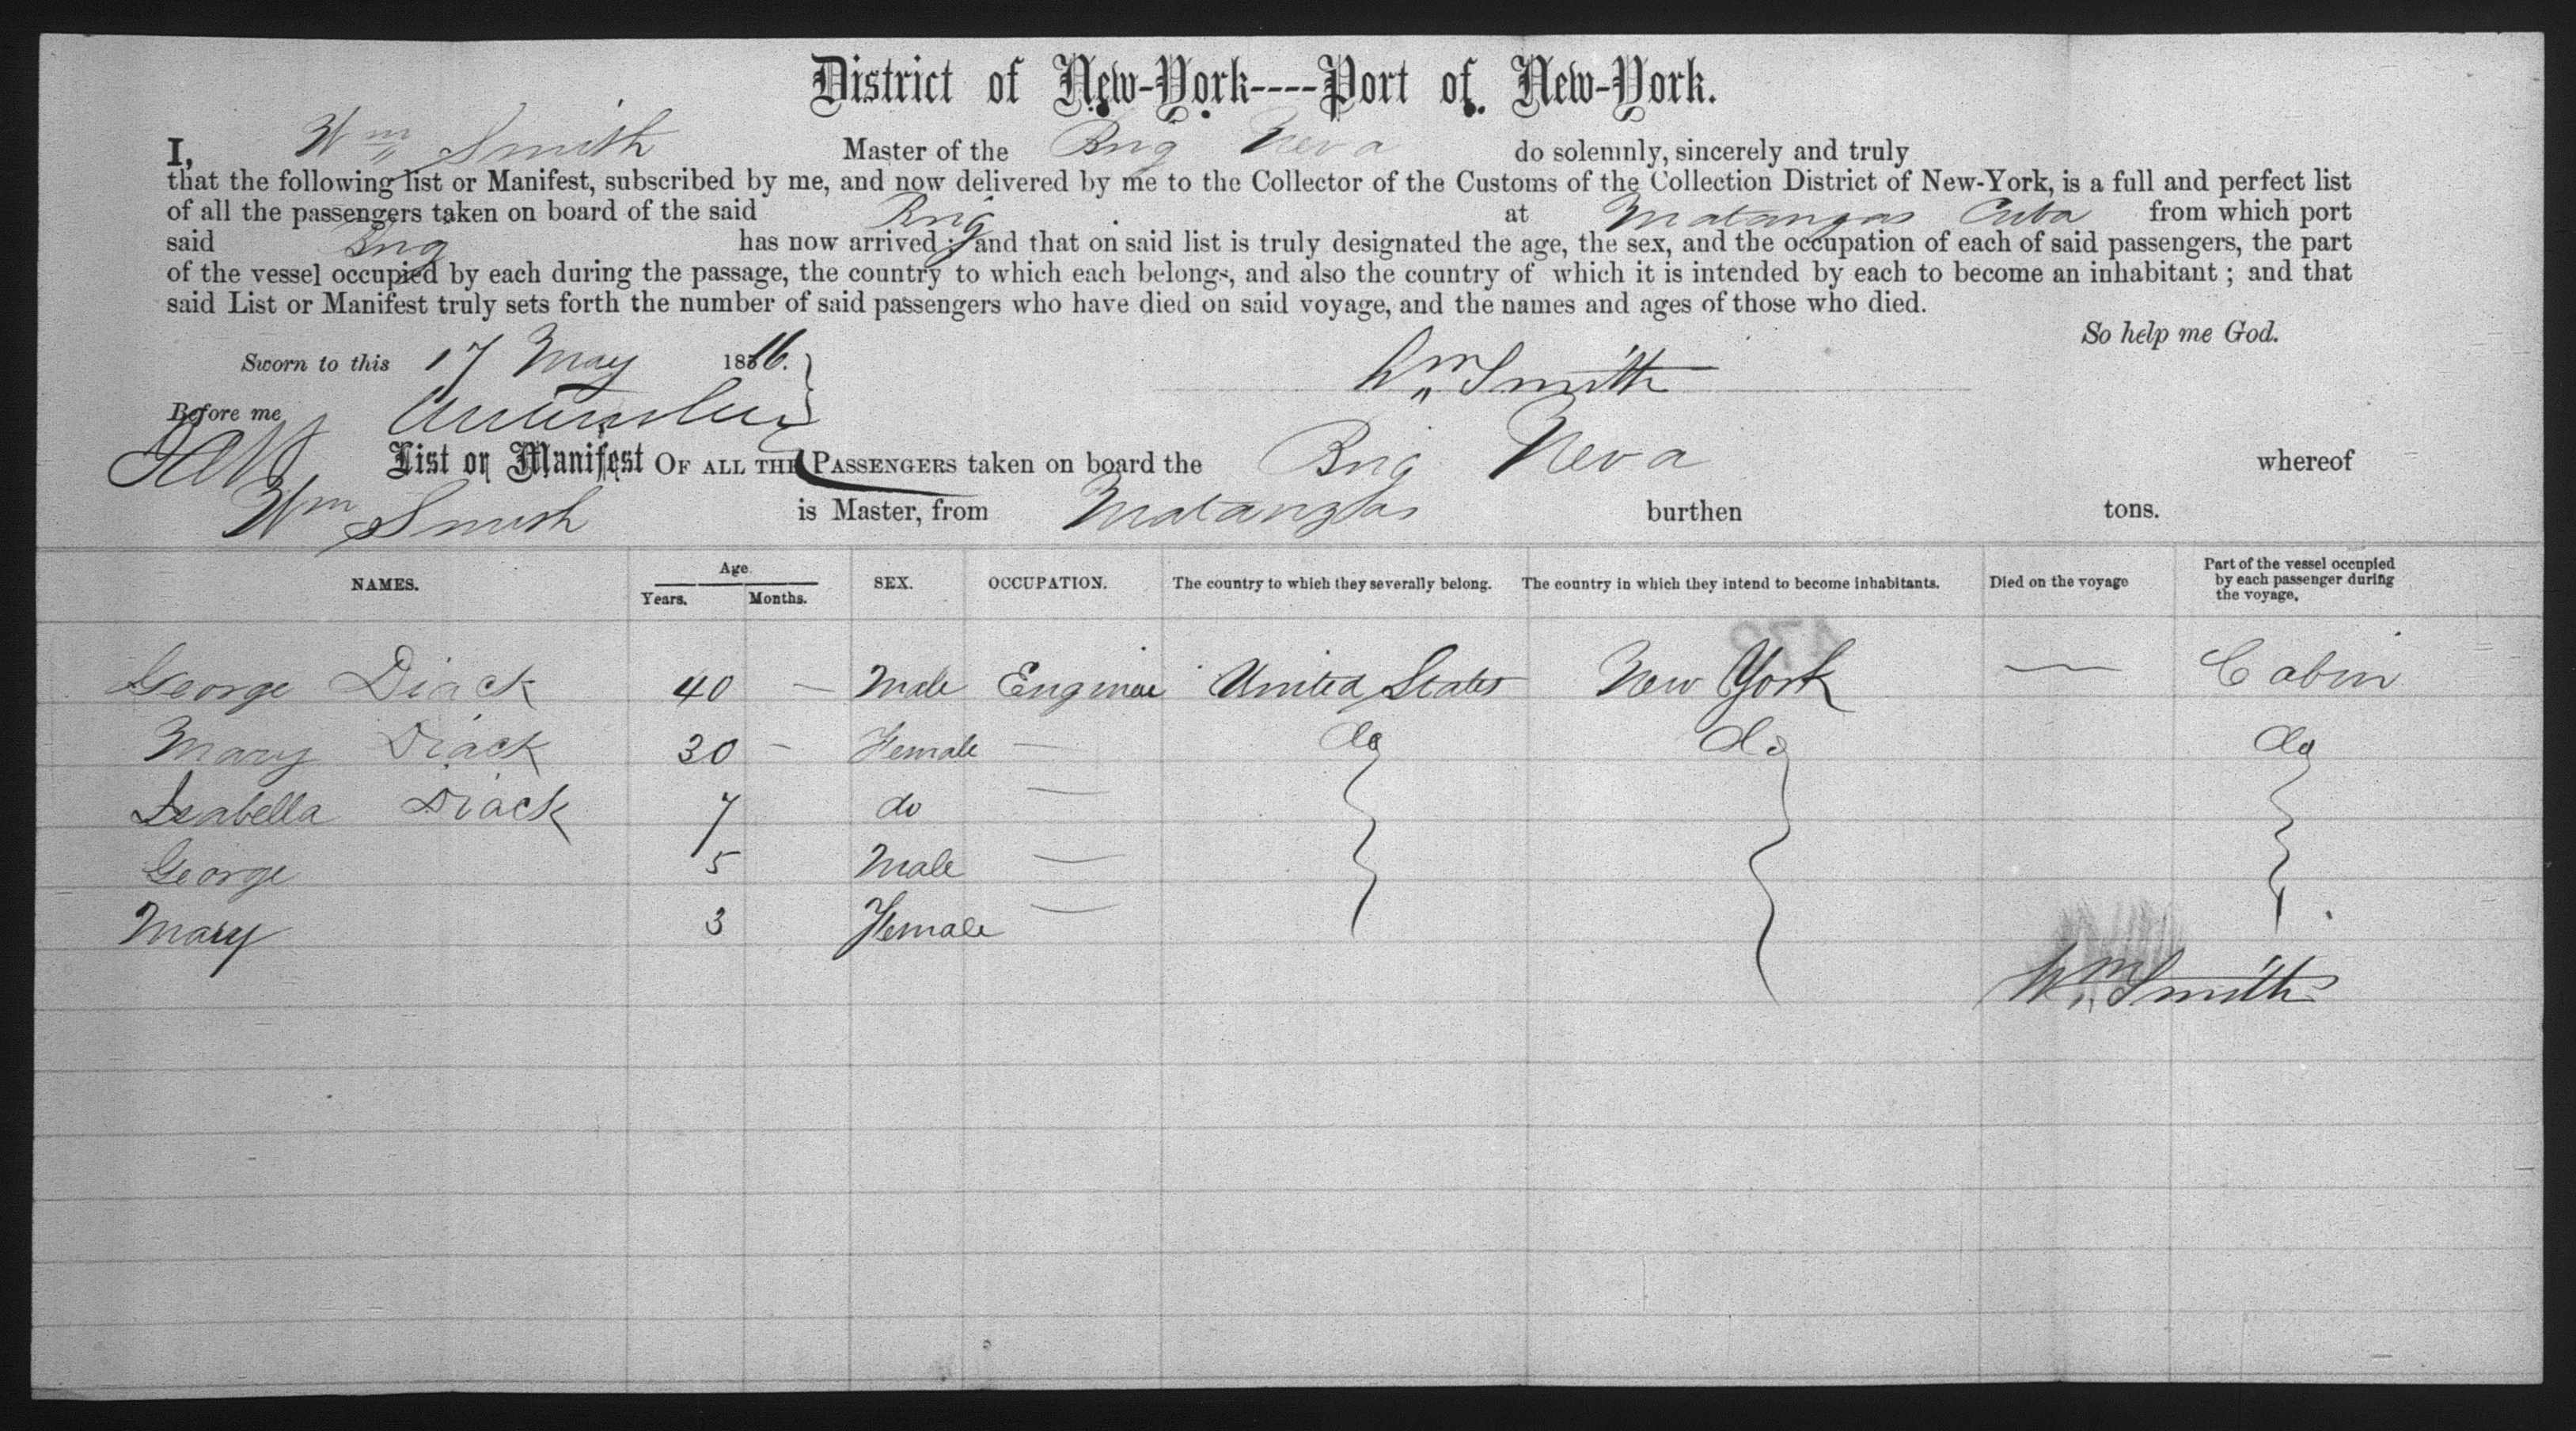 District of New-York----Port of New-York.
I, Wm Smith Master of the Brig Neva do solemnly, sincerely and truly
that the following list or Manifest, subscribed by me, and now delivered by me to the Collector of the Customs of the Collection District of New-York, is a full and perfect list
of all the passengers taken on board of the said Brig at Matanzas Cuba from which port
said Brig has now arrived; and that on said list is truly designated the age, the sex, and the occupation of each of said passengers, the part
of the vessel occupied by each during the passage, the country to which each belongs, and also the country of which it is intended by each to become an inhabitant; and that
said List or Manifest truly sets forth the number of said passengers who have died on said voyage, and the names and ages of those who died.
So help me God.
Sworn to this 17 May 18 6. Wm Smith
Before me
List or Manifest OF ALL THE PASSENGERS taken on board the Brig Neva whereof
Wm Smith is Master, from Matanzas burthen tons.
NAMES. Age. Years. Months. SEX. OCCUPATION. The country to which they severally belong. The country in which they intend to become inhabitants. Died on the voyage Part of the vessel occupied by each passenger during the voyage.
George Diack 40 — Male Engineer United States New York — Cabin
Mary Diack 30 — Female — do do do
Isabella Diack 7 do —
George 5 Male —
Mary 3 Female —
Wm Smith